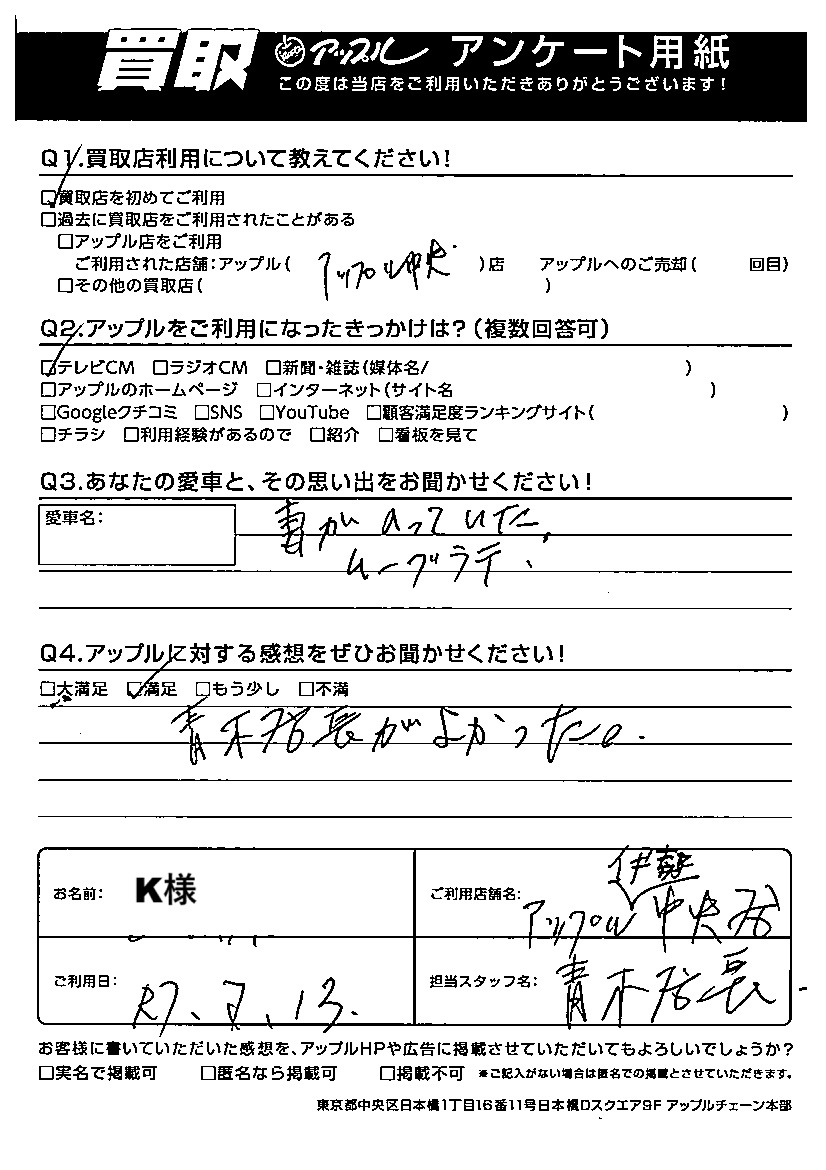 買取 アップル アンケート用紙
この度は当店をご利用いただきありがとうございます!
Q1.買取店利用について教えてください!
☑買取店を初めてご利用
□過去に買取店をご利用されたことがある
□アップル店をご利用
ご利用された店舗:アップル( アップル中央 )店 アップルへのご売却( 回目)
□その他の買取店( )
Q2.アップルをご利用になったきっかけは?(複数回答可)
☑テレビCM □ラジオCM □新聞・雑誌(媒体名/ )
□アップルのホームページ □インターネット(サイト名 )
□Googleクチコミ □SNS □YouTube □顧客満足度ランキングサイト( )
□チラシ □利用経験があるので □紹介 □看板を見て
Q3.あなたの愛車と、その思い出をお聞かせください!
愛車名:
妻がのっていた、
ムーブラテ、
Q4.アップルに対する感想をぜひお聞かせください!
□大満足 ☑満足 □もう少し □不満
青木店長がよかった。
お名前: K様
ご利用店舗名: アップル伊勢中央店
ご利用日: R7.7.13.
担当スタッフ名: 青木店長
お客様に書いていただいた感想を、アップルHPや広告に掲載させていただいてもよろしいでしょうか?
□実名で掲載可 □匿名なら掲載可 □掲載不可 ※ご記入がない場合は匿名での掲載とさせていただきます。
東京都中央区日本橋1丁目16番11号日本橋Dスクエア9F アップルチェーン本部